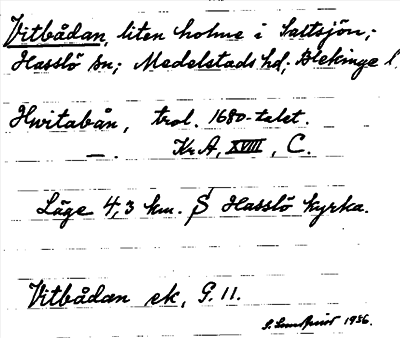 Vitbådan, liten holme i Saltsjön;
Hasslö sn; Medelstads hd; Blekinge l.
Hwitabån, trol. 1680-talet.
— . Kr A, XVIII, C.
Läge 4,3 km. S Hasslö kyrka.
Vitbådan ek, G. 11.
S. Lundquist 1956.